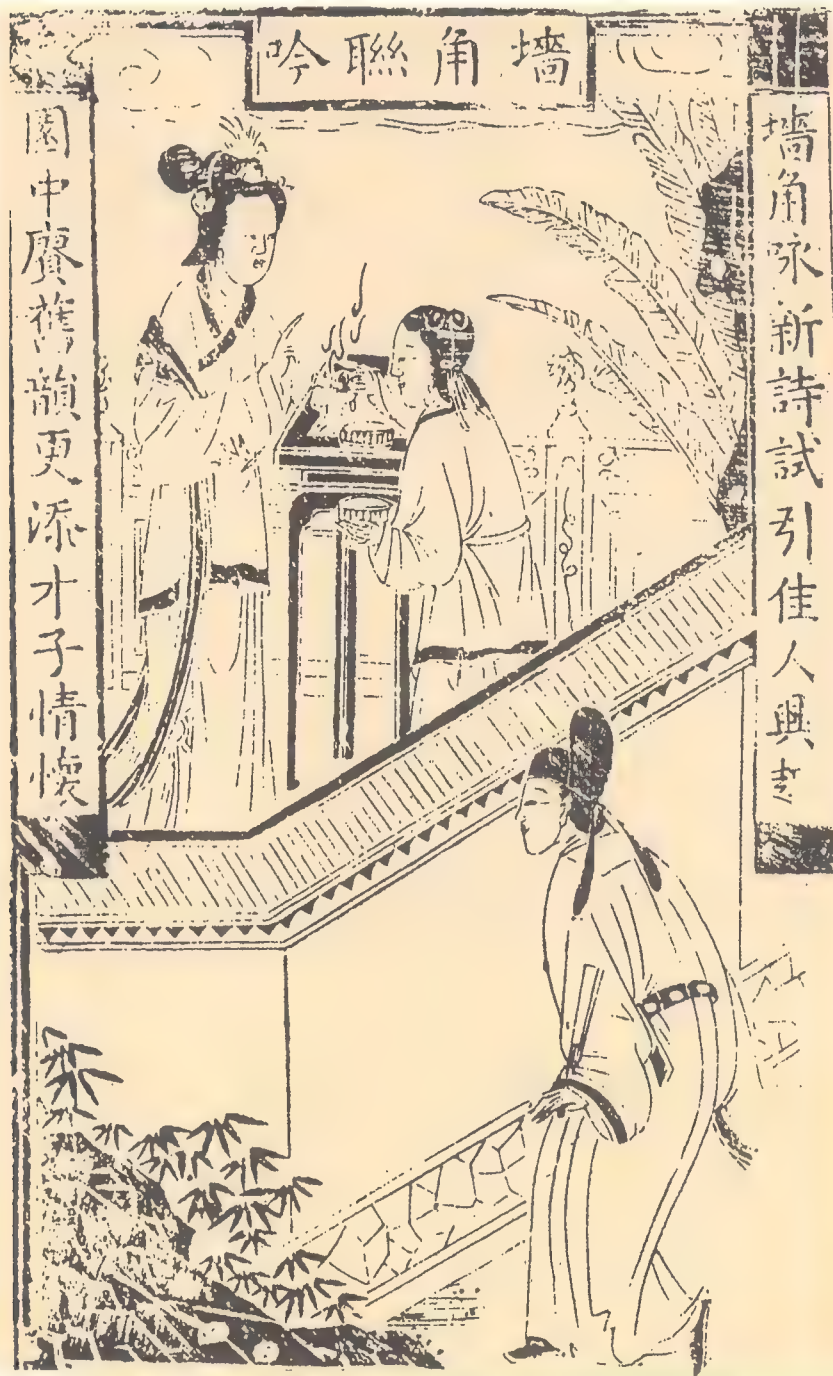 墻角聯吟
墻角咏新詩試引佳人興趣
園中賡舊韻更添才子情懷